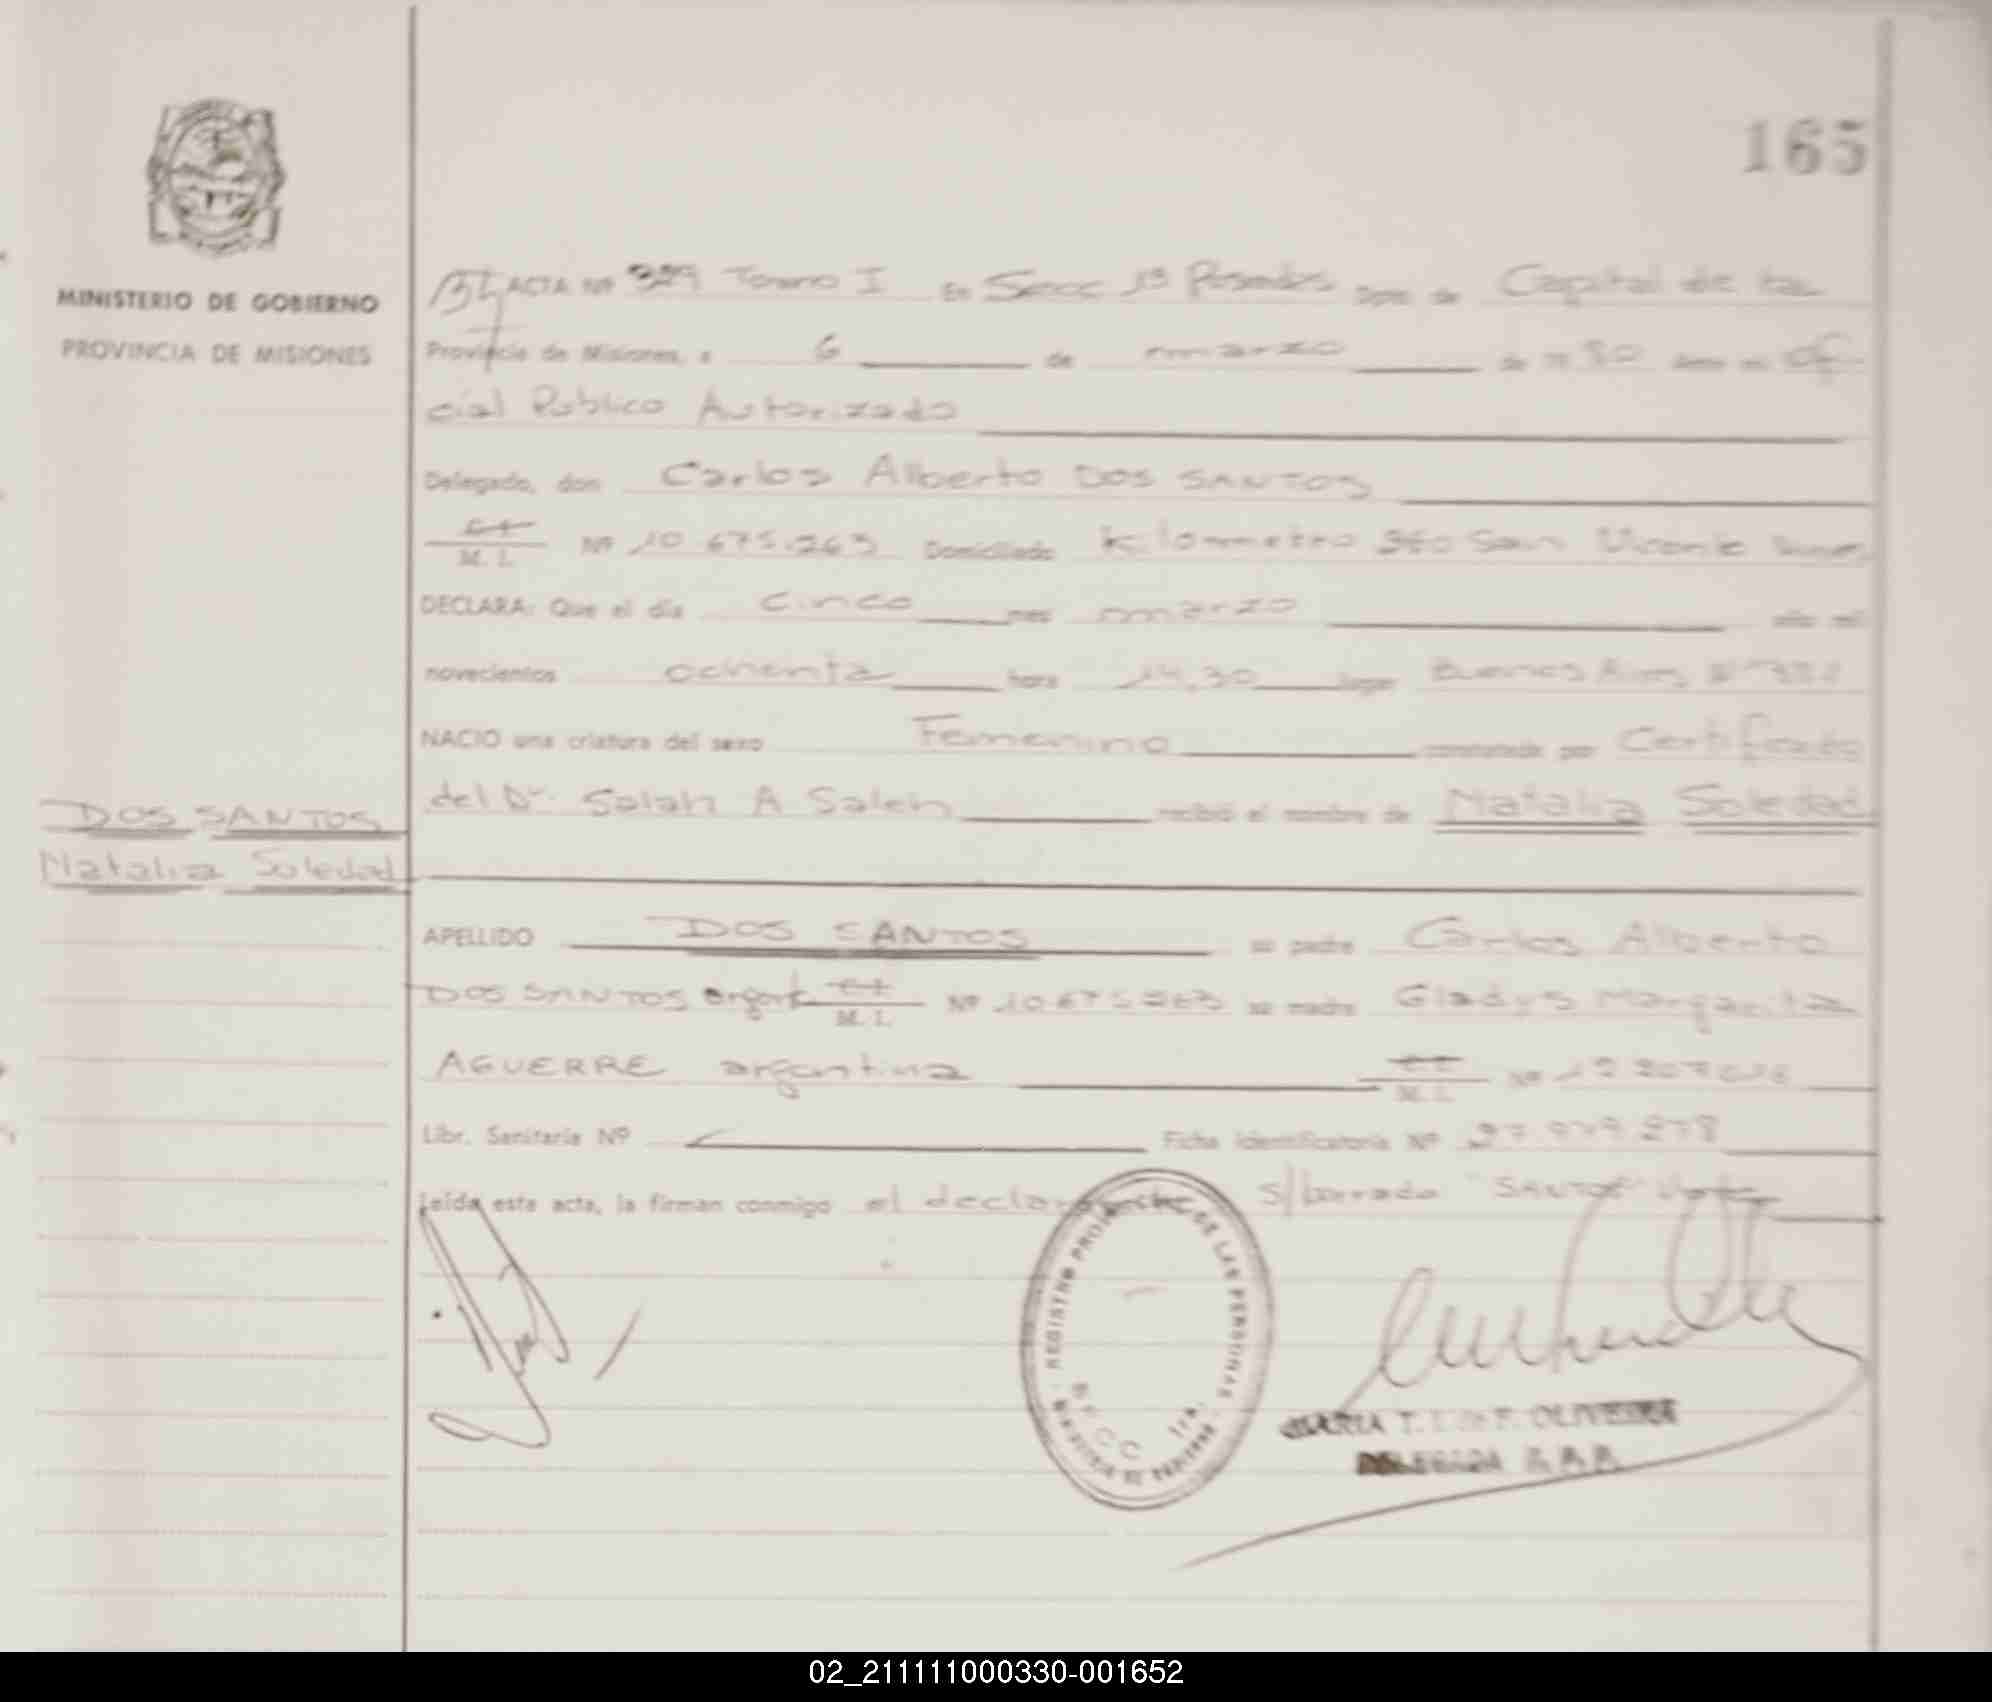 165
MINISTERIO DE GOBIERNO
PROVINCIA DE MISIONES
ACTA Nº 329 Tomo I En Secc 1ª Posadas Dpto. de Capital de la
Provincia de Misiones, a 6 de marzo de 1980 ante mí Ofi
cial Publico Autorizado
Delegado, don Carlos Alberto DOS SANTOS
M. I. Nº 10.675.263 Domiciliado Kilometro San Vicente
DECLARA: Que el día cinco mes marzo año mil
novecientos ochenta hora 14,30 lugar Buenos Aires
NACIO una criatura del sexo Femenino constatado por Certificado
del Dr. Salah A Saleh recibió el nombre de Natalia Soledad
DOS SANTOS
Natalia Soledad
APELLIDO DOS SANTOS su padre Carlos Alberto
DOS SANTOS argent M. I. Nº 10.675.263 su madre Gladys Margarita
AGUERRE argentina M. I. Nº
Libr. Sanitaria Nº Ficha Identificatoria Nº 27.979.278
Leída esta acta, la firman conmigo el declarante S/borrado "SANTOS" Vale
REGISTRO DE LAS PERSONAS
MINISTERIO DE GOBIERNO
MARIA T. OLIVEIRA
DELEGADA
02_211111000330-001652